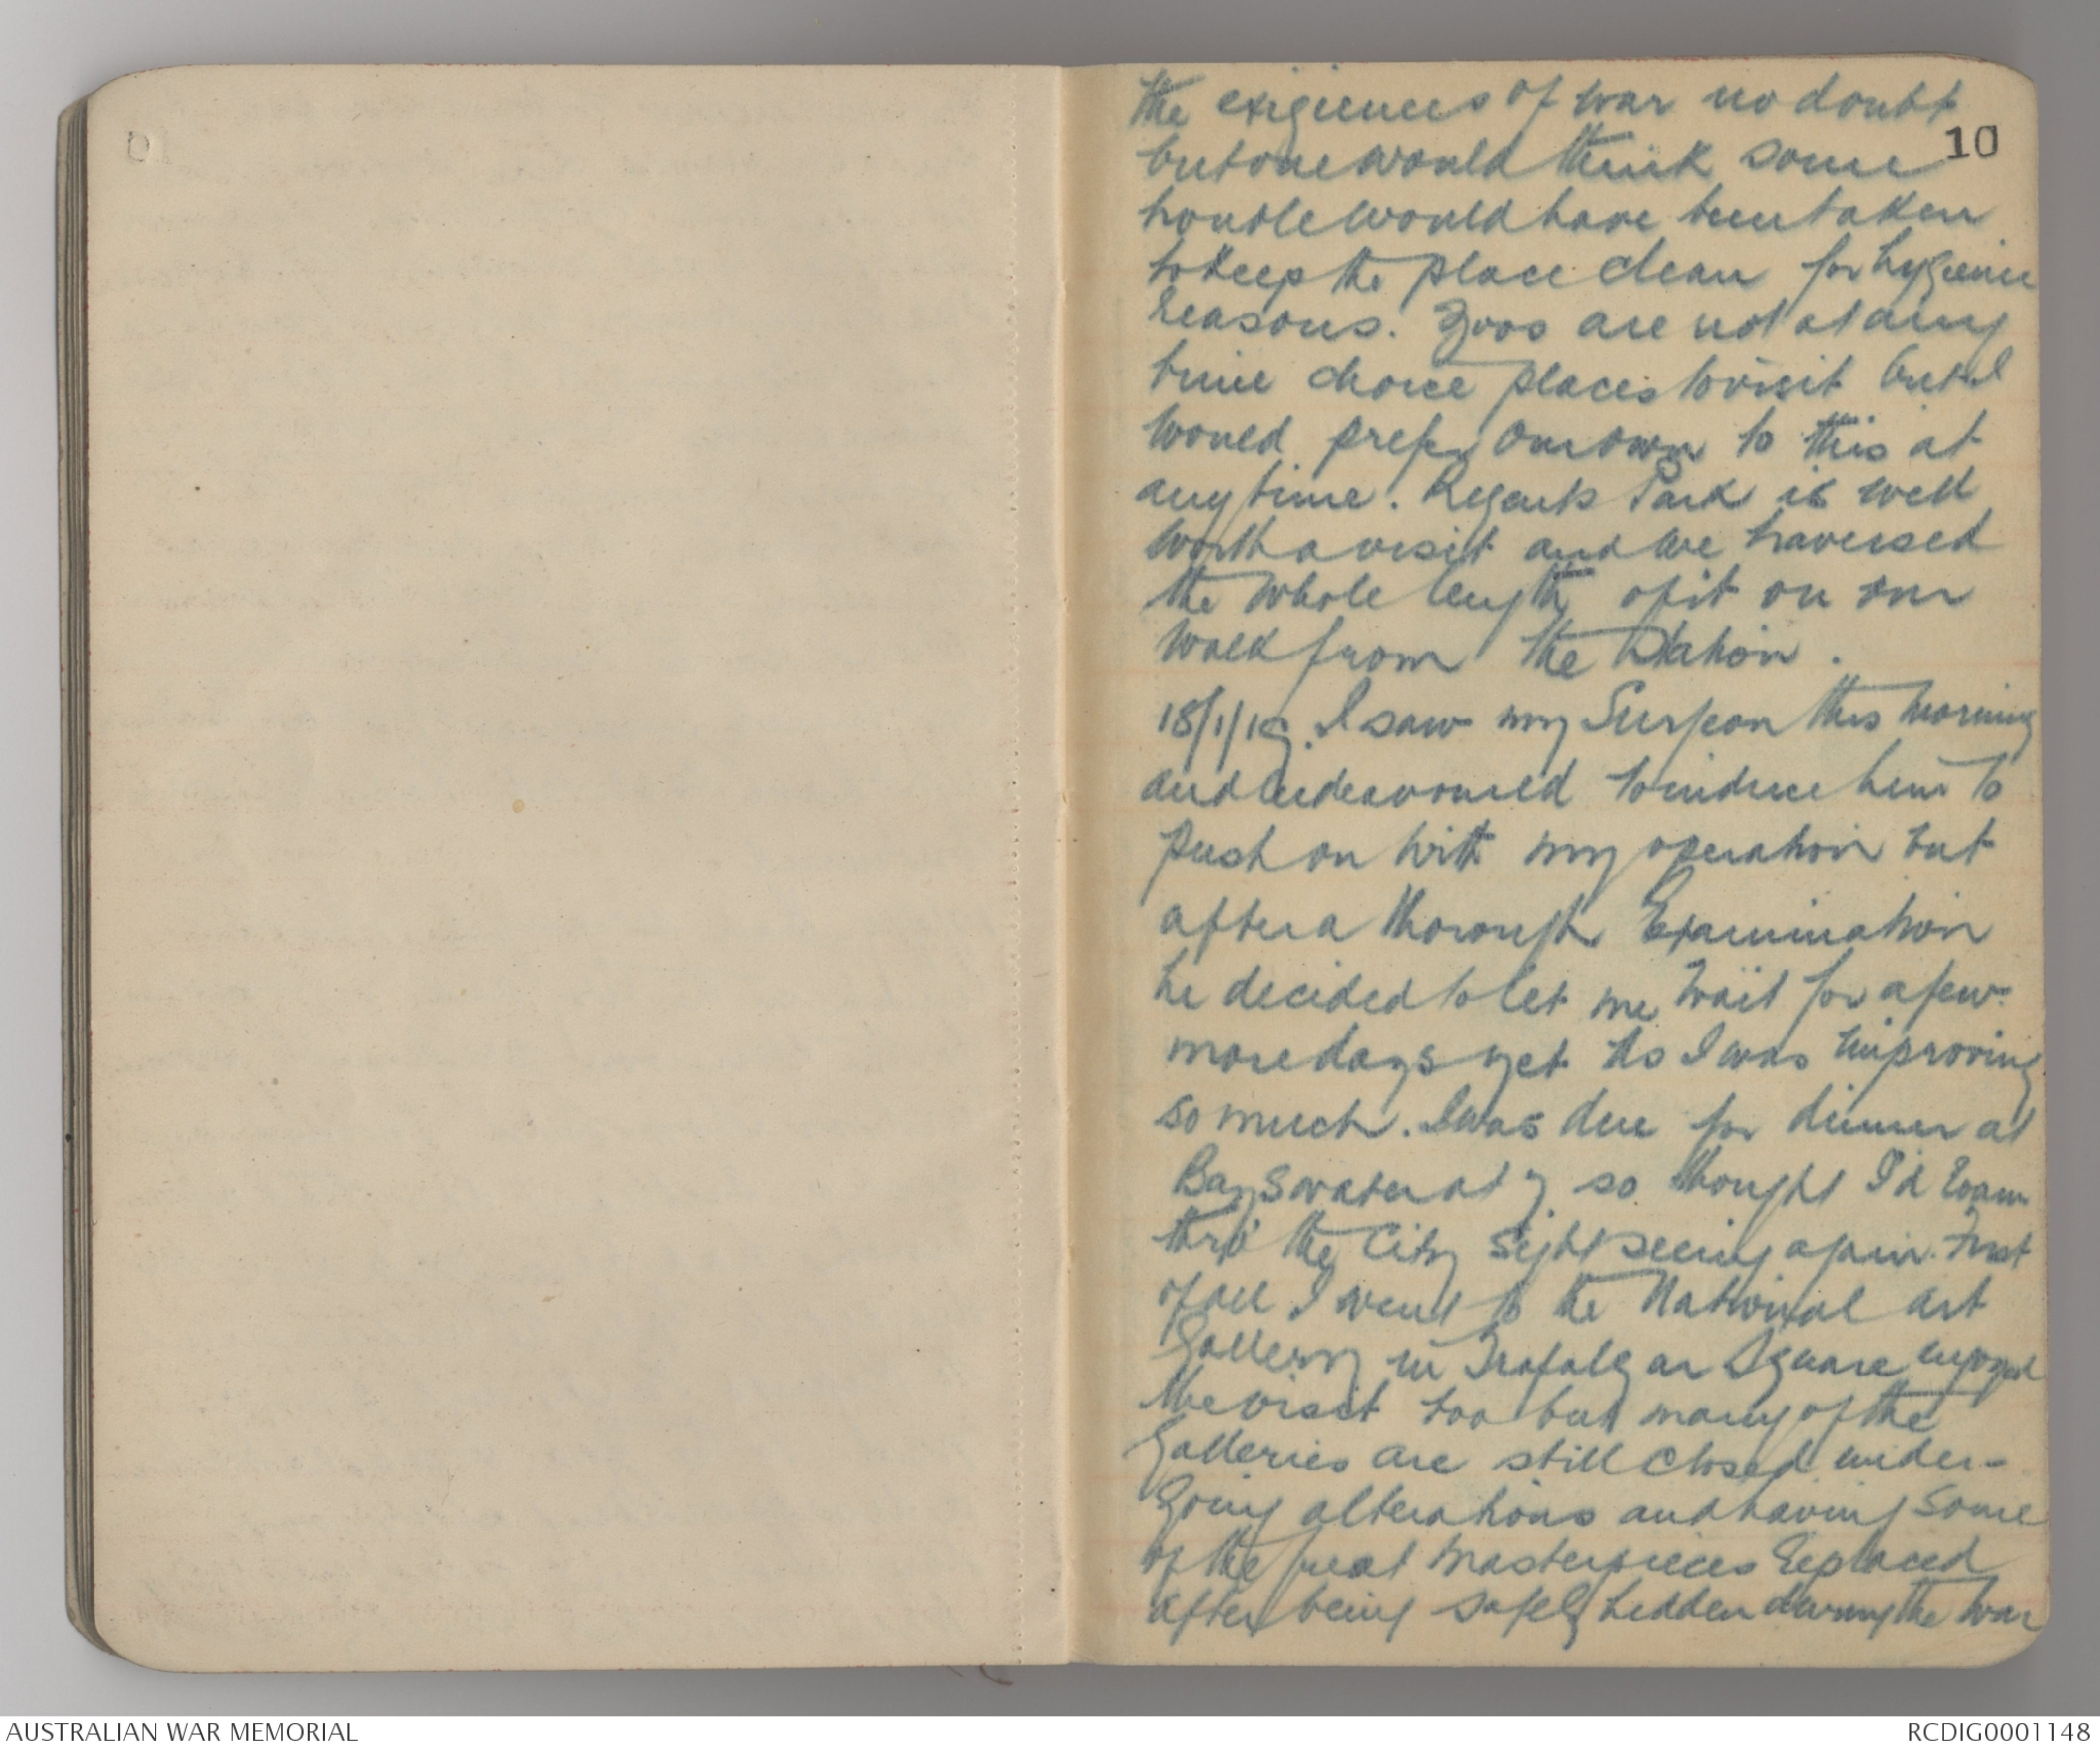 10
the exigiences of war no doubt
but one would think some
trouble would have been taken
to keep the place clean for hygienic
reasons. Zoos are not at any
time choice places to visit but I
would prefer our own to this at
any time. Regents Park is well
worth a visit and we traversed
the whole length of it on our
walk from the Station.
18/1/19. I saw my Surgeon this morning
and endeavoured to induce him to
push on with my operation but
after a thorough Examination
he decided to let me wait for a few
more days yet as I was improving
so much. I was due for dinner at
Bayswater at 7 so thought I'd roam
thro' the City sight seeing again. First
of all I went to the National Art
Gallery in Trafalgar Square enjoyed
the visit too but many of the
Galleries are still closed under-
going alterations and having some
of the great masterpieces replaced
after being safely hidden during the war
AUSTRALIAN WAR MEMORIAL
RCDIG0001148